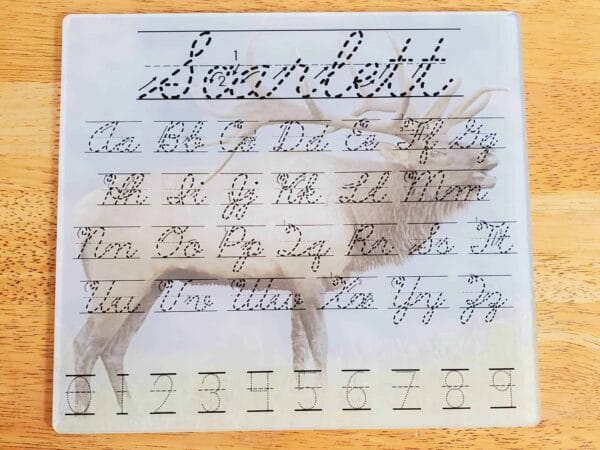 Scarlett
Aa Bb Cc Dd Ee Ff Gg
Hh Ii Jj Kk Ll Mm
Nn Oo Pp Qq Rr Ss Tt
Uu Vv Ww Xx Yy Zz
0 1 2 3 4 5 6 7 8 9